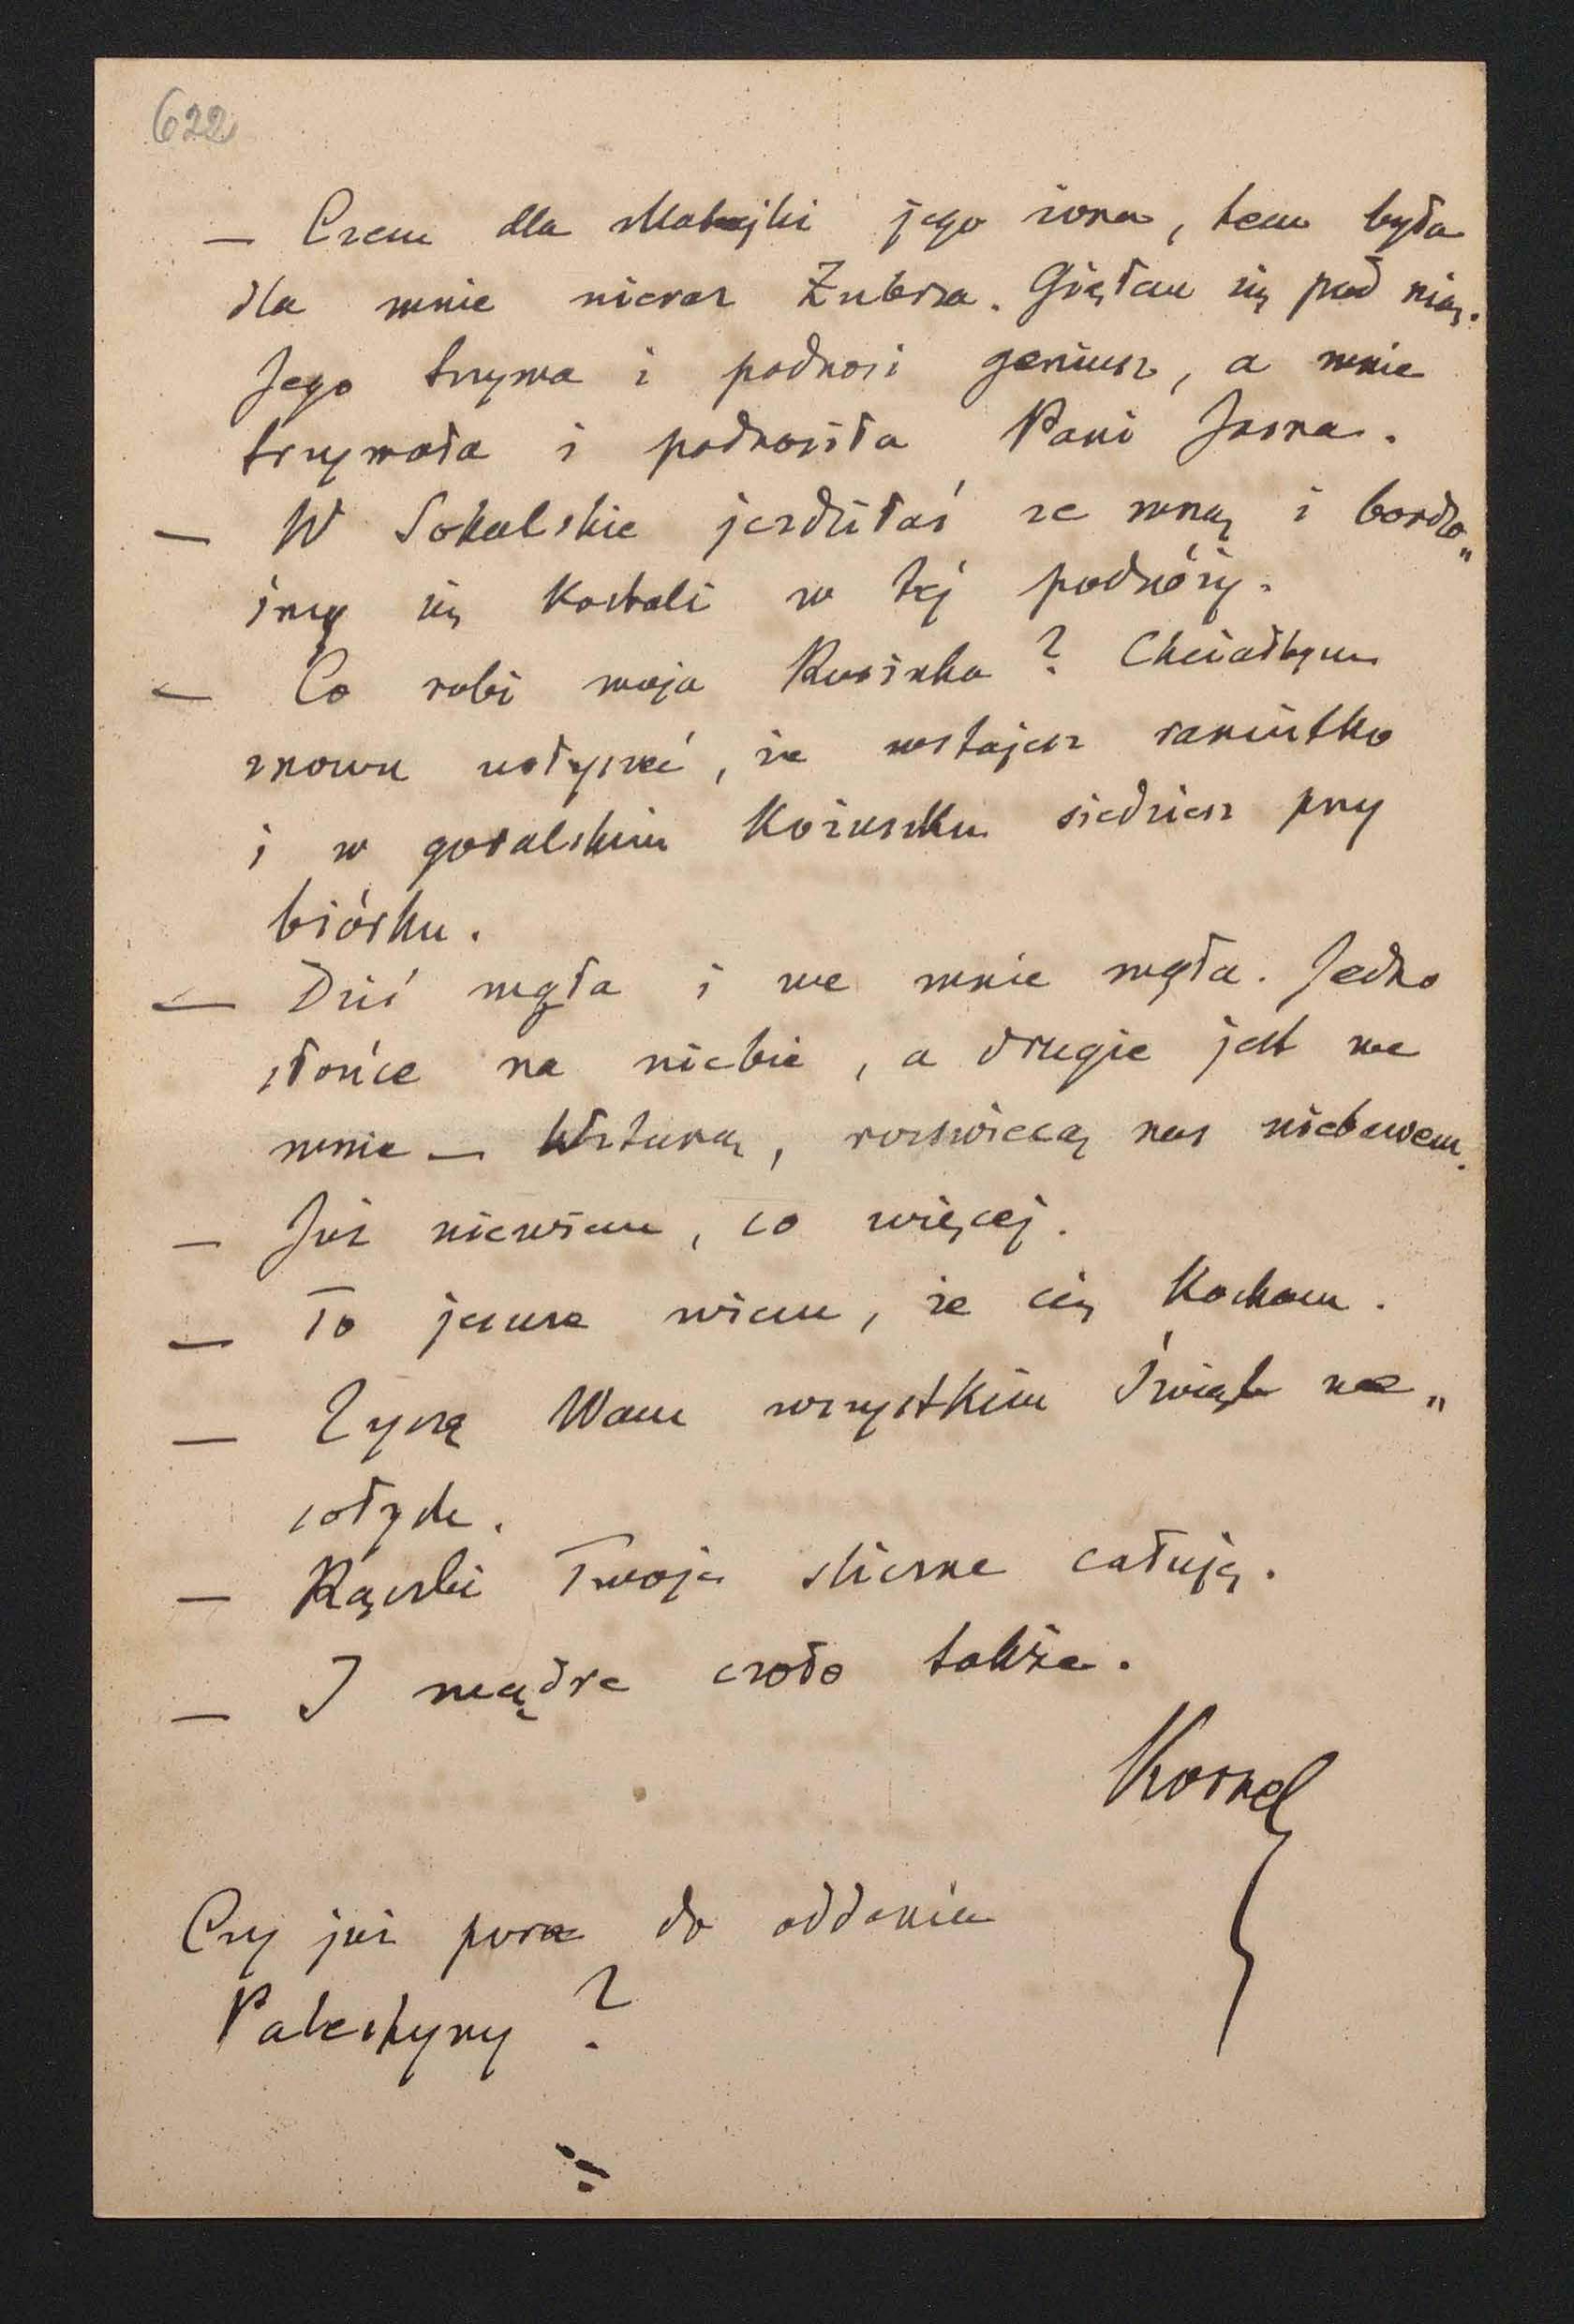 622
— Czem dla Matejki jego żona, tem była
dla mnie nieraz Zubrza. Giąłem się pod nią.
Jego trzyma i podnosi geniusz, a mnie
trzymała i podnosiła Pani Jasna.
— W Sokalskie jeździłaś ze mną i bardzo„
śmy się kochali w tej podróży.
— Co robi moja Rusinka? Chciałbym
znowu usłyszeć, że wstajesz raniutko
i w goralskim kożuszku siedzisz przy
biórku.
— Dziś mgła i we mnie mgła. Jedno
słońce na niebie, a drugie jest we
mnie — Wstaną, rozświecą nas niebawem.
— Już niewiem, co więcej.
— To jeszcze wiem, że cię kocham.
— Życzę Wam wszystkim Świąt we„
sołych.
— Rączki Twoje śliczne całuję.
— I mądre czoło także.
Kornel
Czy już pora do oddania
Palestyny?